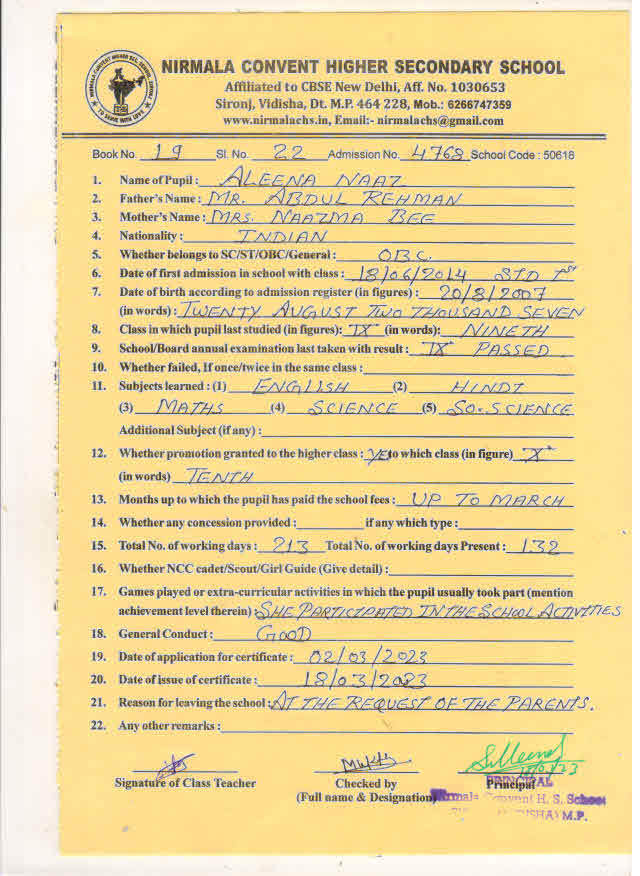 NIRMALA CONVENT HIGHER SECONDARY SCHOOL
Affiliated to CBSE New Delhi, Aff. No. 1030653
Sironj, Vidisha, Dt. M.P. 464 228, Mob.: 6266747359
www.nirmalachs.in, Email:- nirmalachs@gmail.com
Book No. 19 Sl. No. 22 Admission No. 4768 School Code : 50618
1. Name of Pupil : ALEENA NAAZ
2. Father's Name : MR. ABDUL REHMAN
3. Mother's Name : MRS. NAAZMA BEE
4. Nationality : INDIAN
5. Whether belongs to SC/ST/OBC/General : OBC.
6. Date of first admission in school with class : 18/06/2014 STD Ist
7. Date of birth according to admission register (in figures) : 20/8/2007
(in words) : TWENTY AUGUST TWO THOUSAND SEVEN
8. Class in which pupil last studied (in figures): IX (in words): NINETH
9. School/Board annual examination last taken with result : IX PASSED
10. Whether failed, If once/twice in the same class :
11. Subjects learned : (1) ENGLISH (2) HINDI
(3) MATHS (4) SCIENCE (5) SO. SCIENCE
Additional Subject (if any) :
12. Whether promotion granted to the higher class : YES to which class (in figure) X
(in words) TENTH
13. Months up to which the pupil has paid the school fees : UP TO MARCH
14. Whether any concession provided : if any which type :
15. Total No. of working days : 213 Total No. of working days Present : 132
16. Whether NCC cadet/Scout/Girl Guide (Give detail) :
17. Games played or extra-curricular activities in which the pupil usually took part (mention
achievement level therein) : SHE PARTICIPATED IN THE SCHOOL ACTIVITIES
18. General Conduct : GOOD
19. Date of application for certificate : 02/03/2023
20. Date of issue of certificate : 18/03/2023
21. Reason for leaving the school : AT THE REQUEST OF THE PARENTS.
22. Any other remarks :
Signature of Class Teacher Checked by Principal
(Full name & Designation)
PRINCIPAL
Convent H. S. School
M.P.